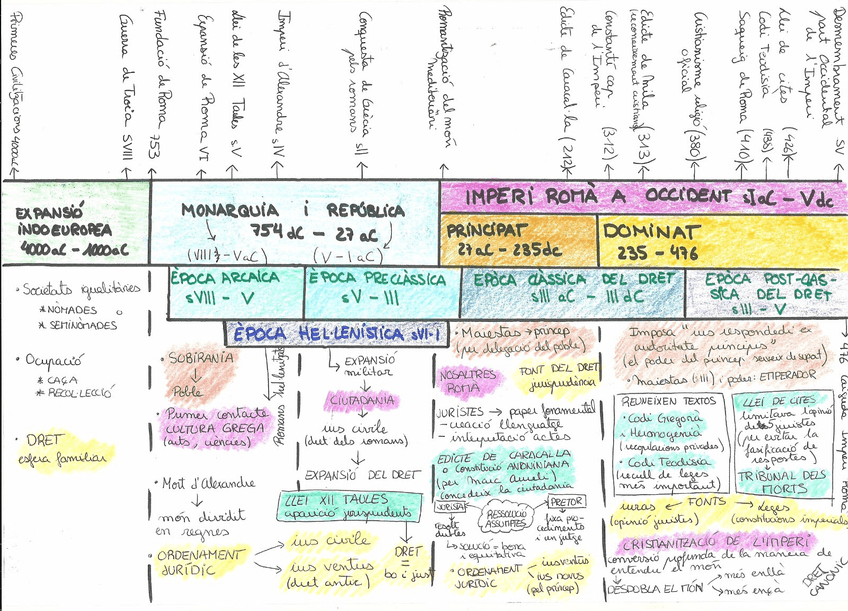 Primeres Civilitzacions 4000aC
Guerra de Troia SVIII
Fundació de Roma 753
Expansió de Roma VI
Llei de les XII Taules sV
Imperi d'Alexandre sIV
Conquesta de Grècia
pels romans sII
Romanització del món
mediterràni
Edicte de Caracal·la (212)
Constantí cap.
de l'Imperi (312)
Edicte de Milà
(reconeixement cristians) (313)
Cristianisme religió
oficial (380)
Saqueig de Roma (410)
Codi Teodisià (438)
Llei de cites (426)
Desmembrament
part Occidental
de l'Imperi SV
EXPANSIÓ
INDOEUROPEA
4000aC - 1000aC
MONARQUIA i REPÚBLICA
754 dC - 27 aC
(V - I aC)
IMPERI ROMÀ A OCCIDENT sI aC - V dc
PRINCIPAT
27 aC - 235dC
DOMINAT
235 - 476
ÈPOCA ARCAICA
sVIII - V
ÈPOCA PRECLÀSSICA
sV - III
EPÒCA CLÀSSICA DEL DRET
sIII aC - III dC
EPÒCA POST-CLAS-
SICA DEL DRET
sIII - V
ÈPOCA HEL·LENÍSTICA sVI-I
· Societats igualitàries
* NÒMADES
* SEMINÒMADES
· Ocupació
* CAÇA
* RECOL·LECCIÓ
· DRET
esfera familiar
· SOBIRANIA
Poble
· Primer contacte
CULTURA GREGA
(arts, ciències)
· Mort d'Alexandre
món dividit
en regnes
· ORDENAMENT
JURÍDIC
ius civile
ius ventus
(dret antic)
EXPANSIÓ
militar
CIUTADANIA
ius civile
(dret dels romans)
EXPANSIÓ DEL DRET
LLEI XII TAULES
aparició jurisprudents
DRET
=
bo i just
· Maiestas → princep
(per delegació del poble)
NOSALTRES
ROMA
FONT DEL DRET
jurisprudència
JURISTES → paper fonamental
- creació llenguatge
- interpretació actes
EDICTE DE CARACAL·LA
o Constitució ANONINIANA
(per Marc Aureli)
concedeix la ciutadania
JURISTAS
RESOLUCIÓ
ASSUMPTES
PRETOR
resolt
dubtes
fixa pro-
cediments
i un jutge
solució = bona
i equitativa
· ORDENAMENT
JURÍDIC
ius ventus
ius novus
(pel príncep)
Imposa "ius respondedi ex
autoritate principis"
(el poder del príncep serveix de spat)
· maiestas (III) i poder: EMPERADOR
REUNEIXEN TEXTOS
· Codi Gregorià
i Hermogenià
(recopilacions privades)
· Codi Teodisià
(recull de lleges
més important)
LLEI DE CITES
limitava l'opinió
dels juristes
(per evitar la
falsificació de
respostes)
TRIBUNAL DELS
MORTS
iuras ← FONTS → leges
(opinió juristes) (constitucions imperials)
CRISTIANITZACIÓ DE L'IMPERI
conversió profunda de la manera de
entendre el món
DESDOBLA EL MÓN
més enllà
més ençà
DRET
CANÒNIC